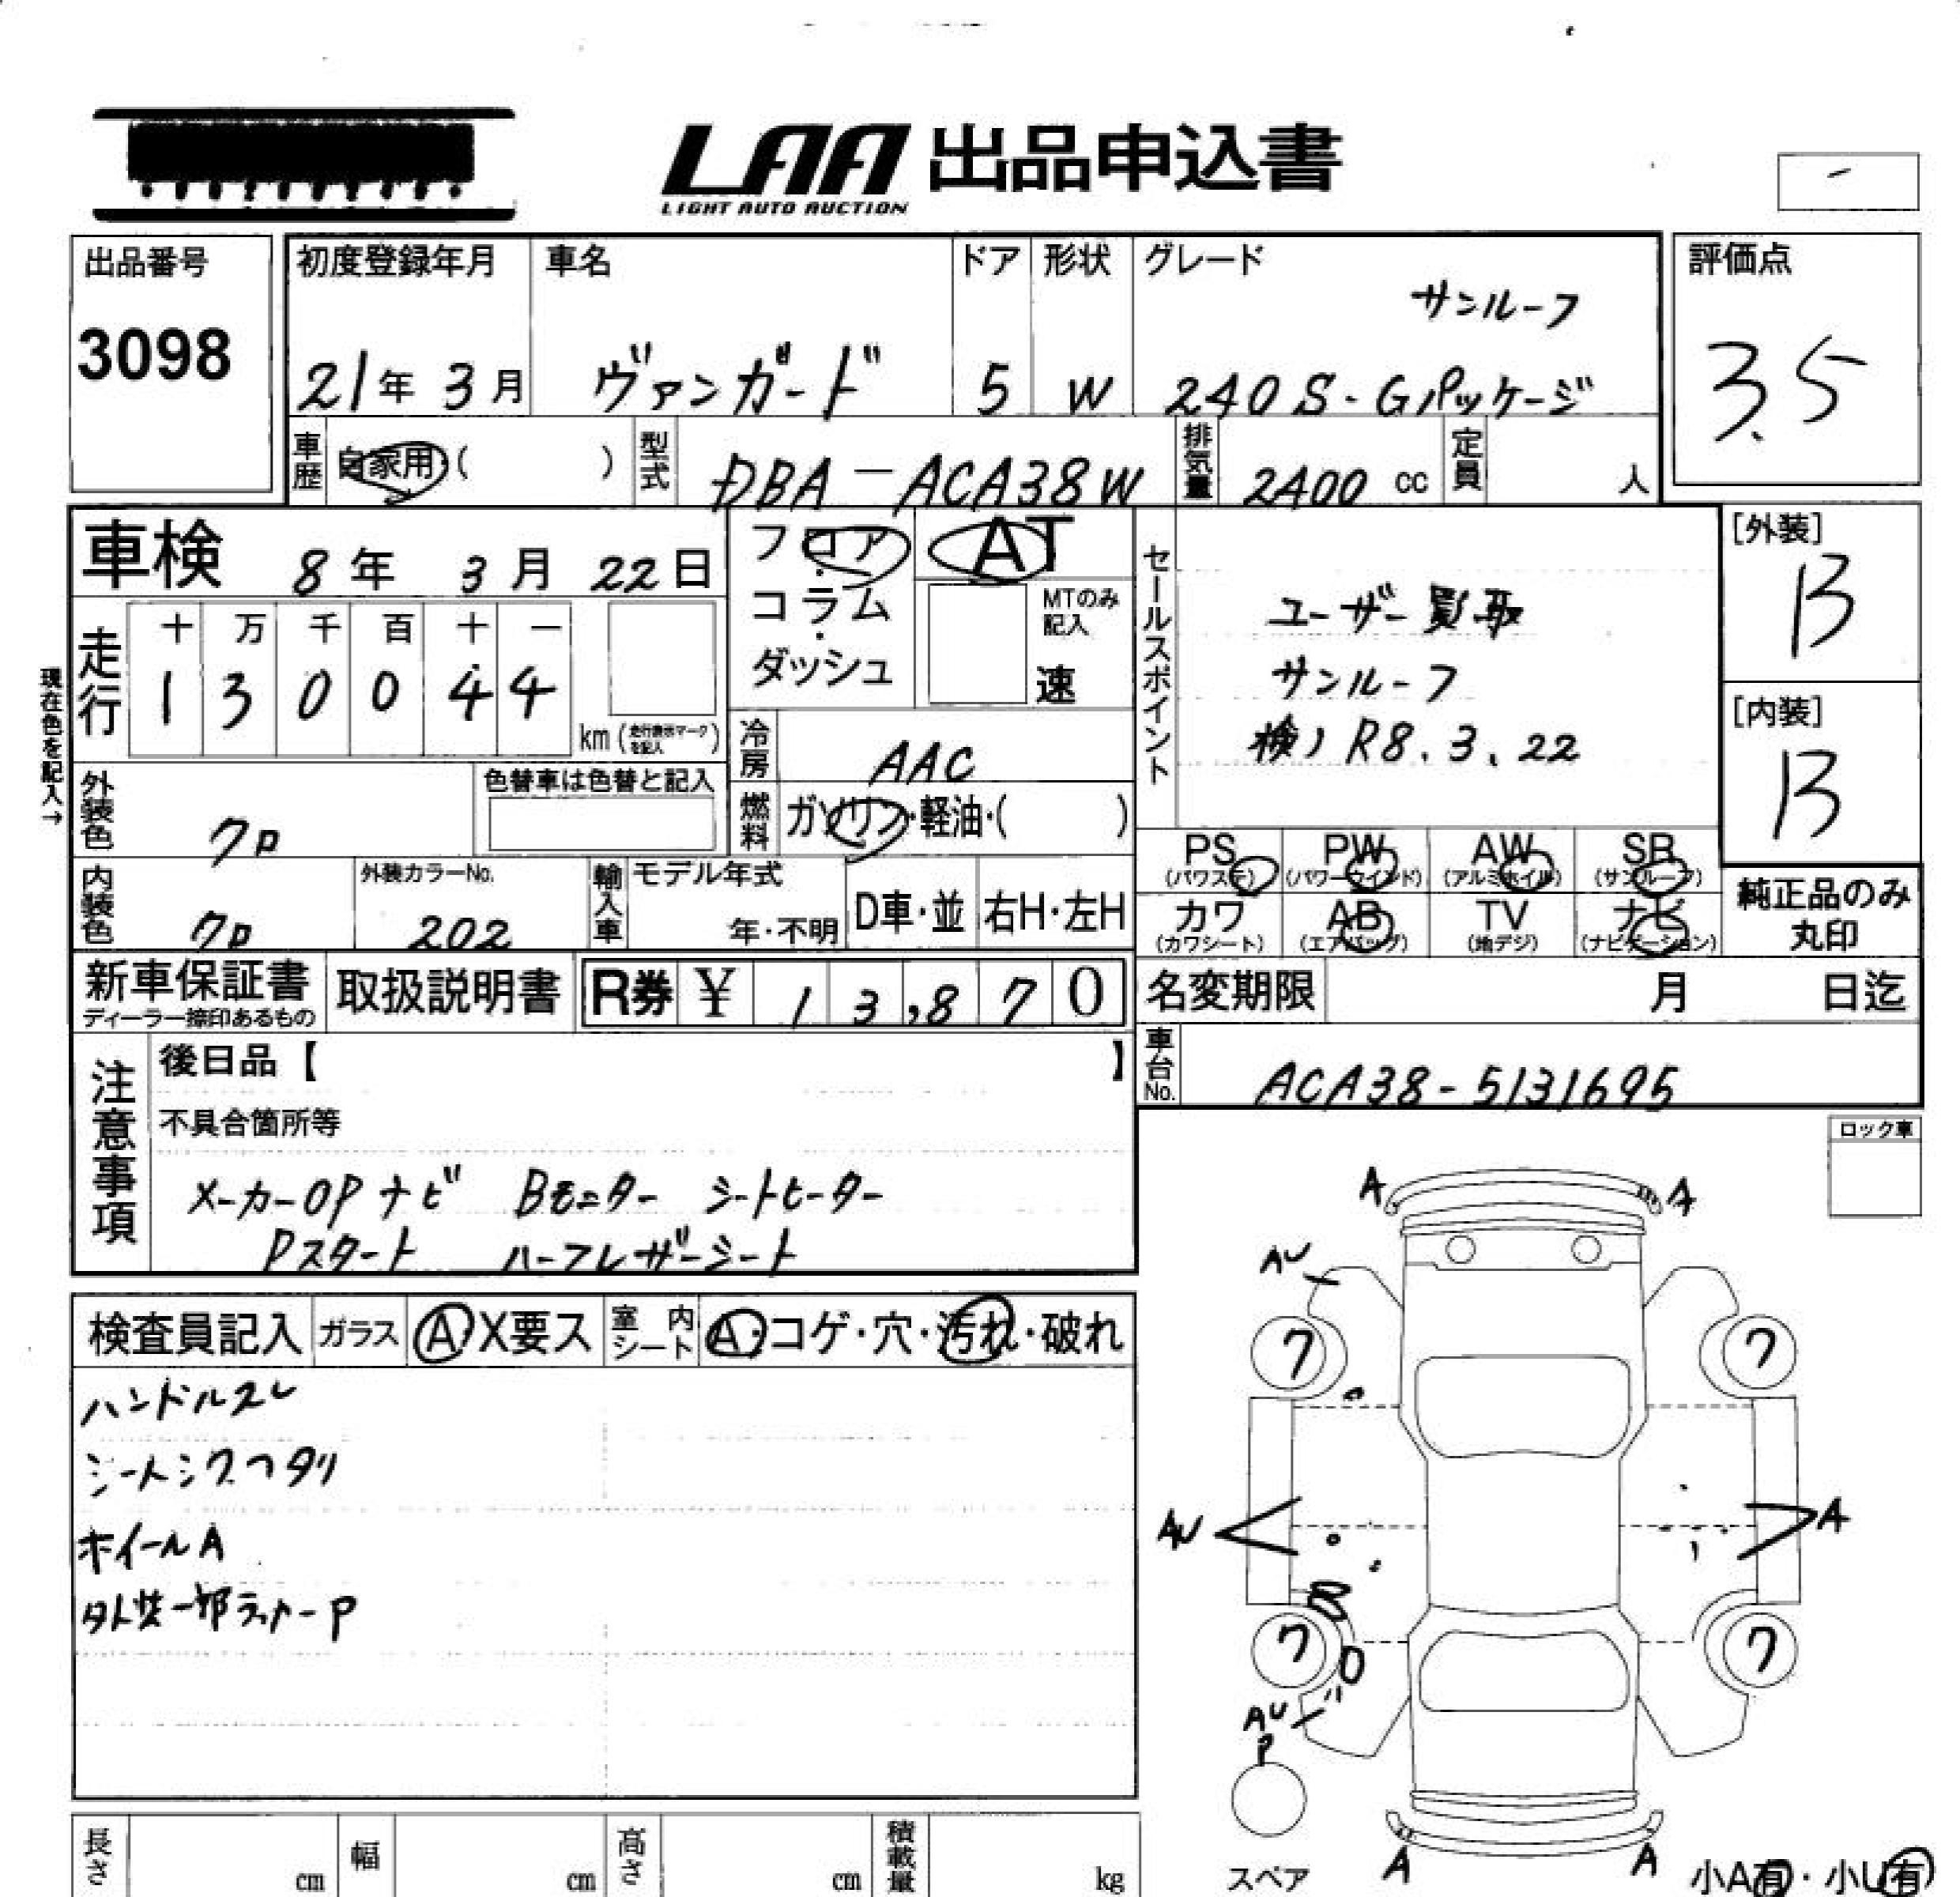 LAA 出品申込書
LIGHT AUTO AUCTION
出品番号
3098
初度登録年月
21年 3月
車名
ヴァンガード
ドア
5
形状
W
グレード
サンルーフ
240S・Gパッケージ
評価点
3.5
車歴 自家用・( )
型式 DBA-ACA38W
排気量 2400 cc
定員 人
車検 8年 3月 22日
現在色を記入→
走行
十 万 千 百 十 一
1 3 0 0 4 4
km (走行表示マークを記入)
フロア・コラム・ダッシュ
AT
MTのみ記入
速
冷房 AAC
燃料 ガソリン・軽油・( )
セールスポイント
ユーザー買取
サンルーフ
検) R8.3.22
[外装]
B
[内装]
B
外装色 クロ
色替車は色替と記入
内装色 クロ
外装カラーNo.
202
輸入車 モデル年式
年・不明
D車・並
右H・左H
PS (パワステ)
PW (パワーウインド)
AW (アルミホイル)
SR (サンルーフ)
カワ (カワシート)
AB (エアバッグ)
TV (地デジ)
ナビ (ナビゲーション)
純正品のみ丸印
新車保証書
ディーラー捺印あるもの
取扱説明書
R券 ¥ 13,870
名変期限 月 日迄
車台No. ACA38-5131695
注意事項
後日品【 】
不具合箇所等
メーカーOPナビ Bモニター シートヒーター
Pスタート ハーフレザーシート
ロック車
検査員記入 ガラス A X要ス 室内シート A・コゲ・穴・汚れ・破れ
ハンドルスレ
シートシワヘタリ
ホイールA
外装一部ラッカーP
A A
AU
ワ ワ
AU A
ワ ワ
AU
P
スペア
A A
小A有・小U有
長さ cm
幅 cm
高さ cm
積載量 kg